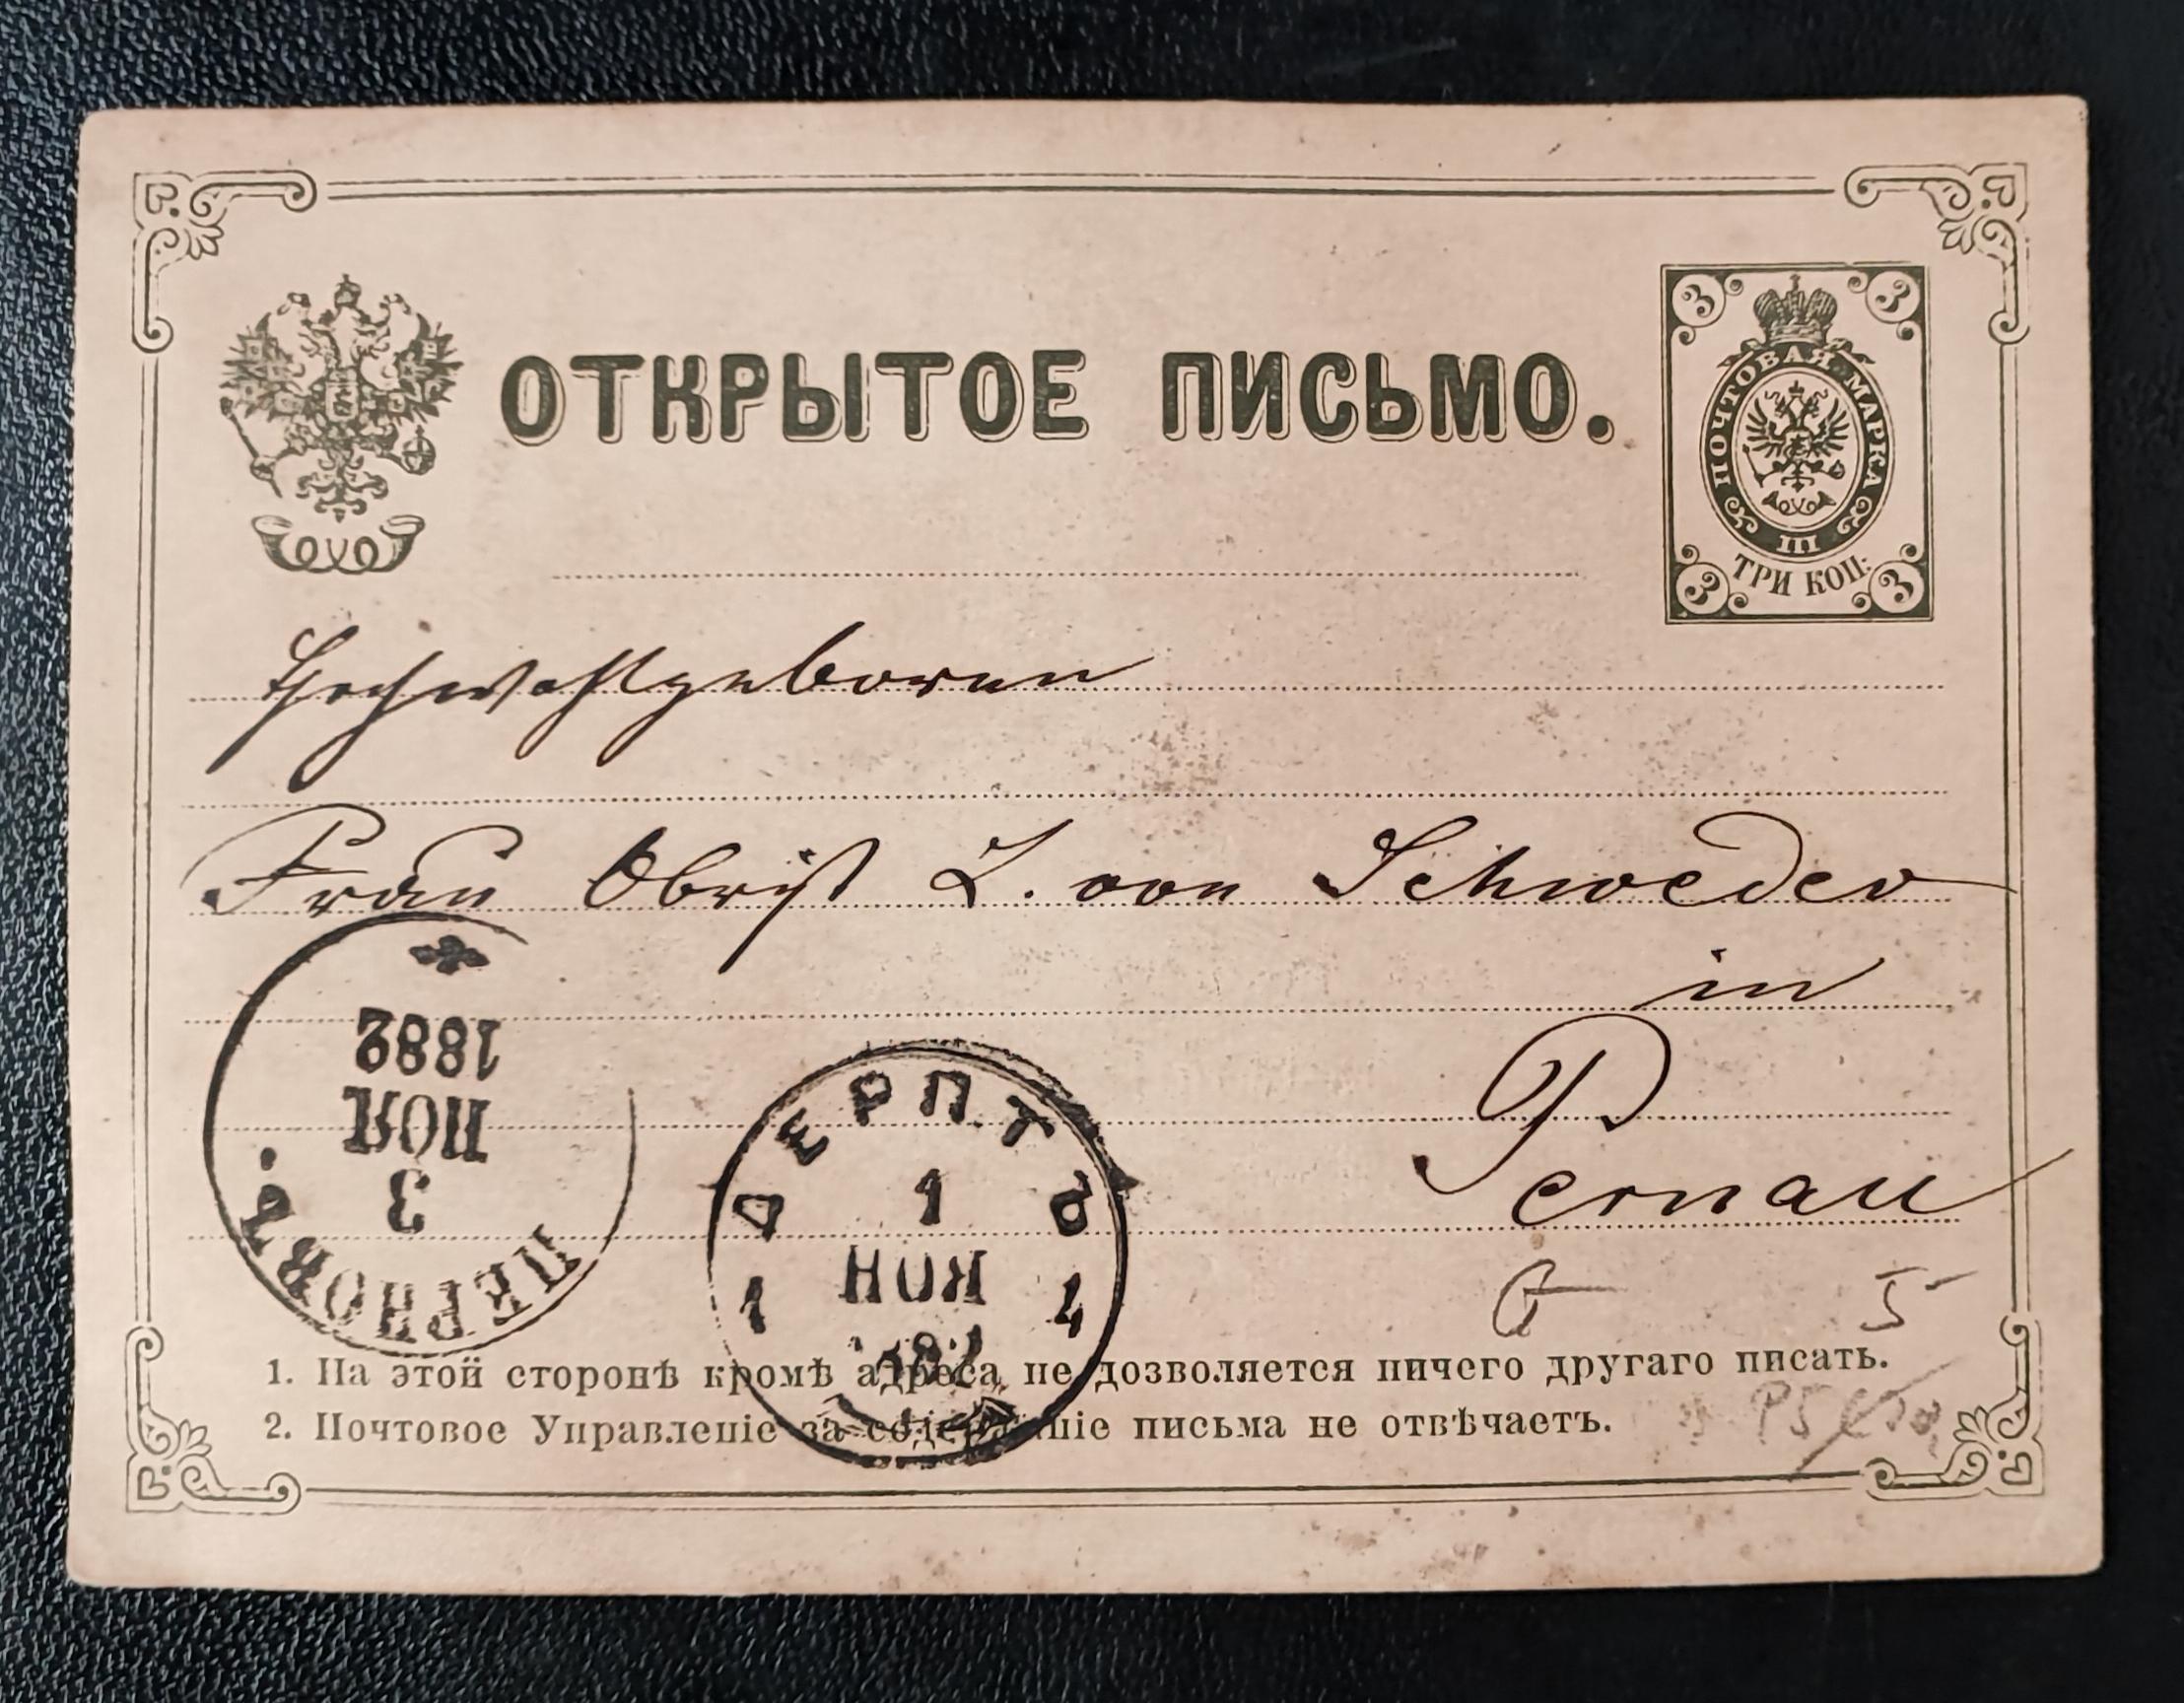 ОТКРЫТОЕ ПИСЬМО.
3 3
ПОЧТОВАЯ МАРКА
III
ТРИ КОП.
3 3
Hochwohlgeboren
Frau Obrist L. von Schweder
in
Pernau
1882
НОЯ
3
ПЕРНОВЪ.
ДЕРПТЪ
1
1 НОЯ 4
1882
5
1. На этой сторонѣ кромѣ адреса не дозволяется ничего другаго писать.
2. Почтовое Управленіе за содержаніе письма не отвѣчаетъ.